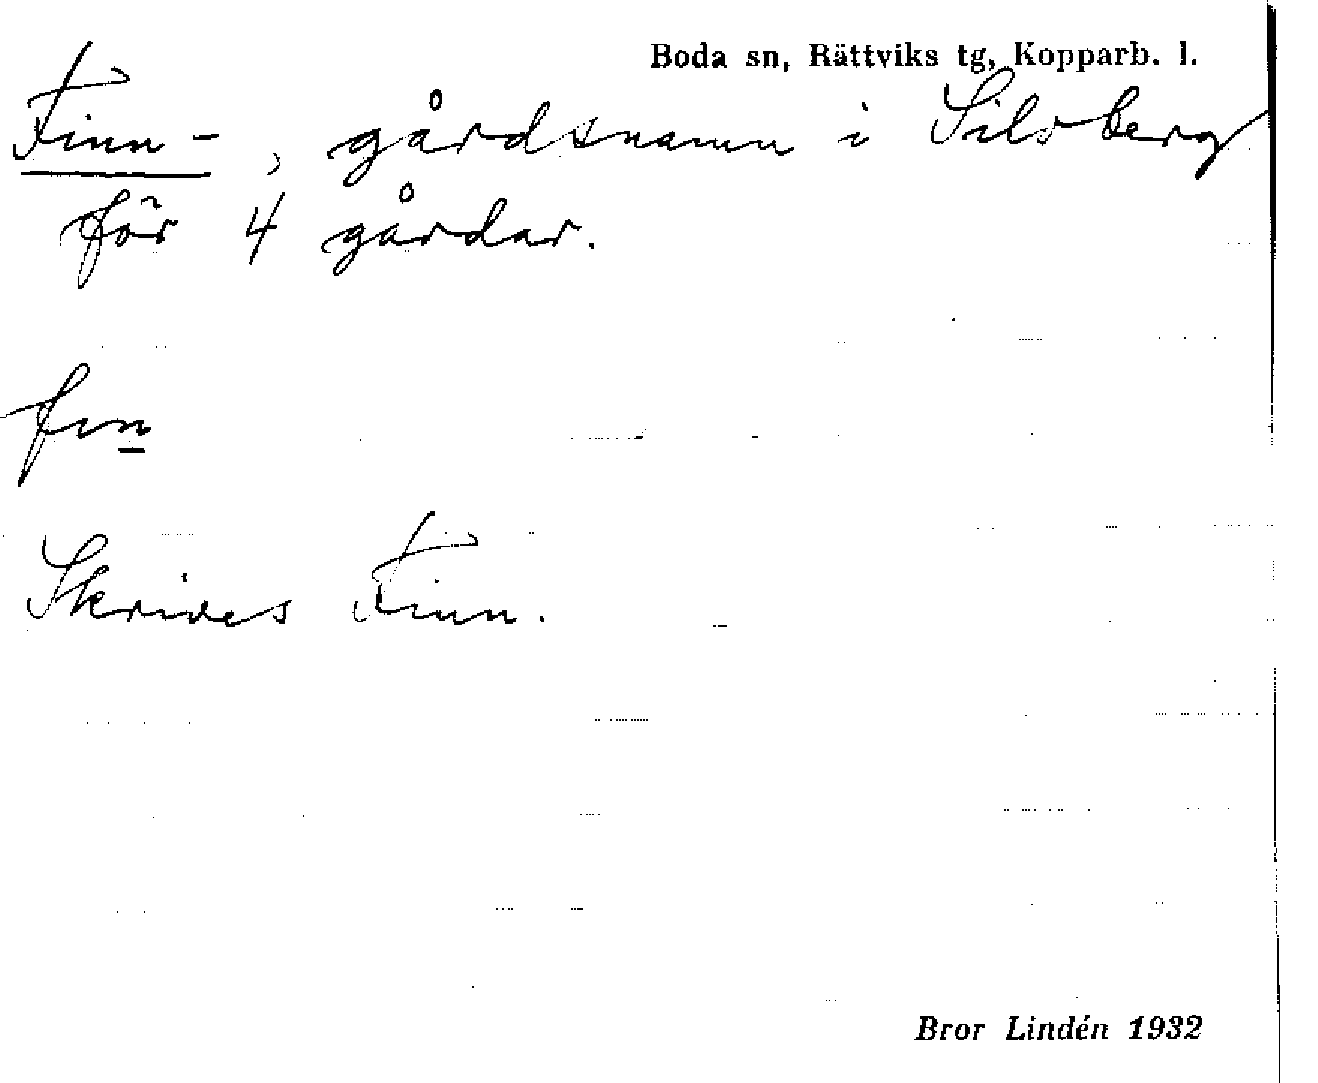 Boda sn, Rättviks tg, Kopparb. l.
Finn-, gårdsnamn i Silvberg
för 4 gårdar.
fin
Skrives Finn.
Bror Lindén 1932